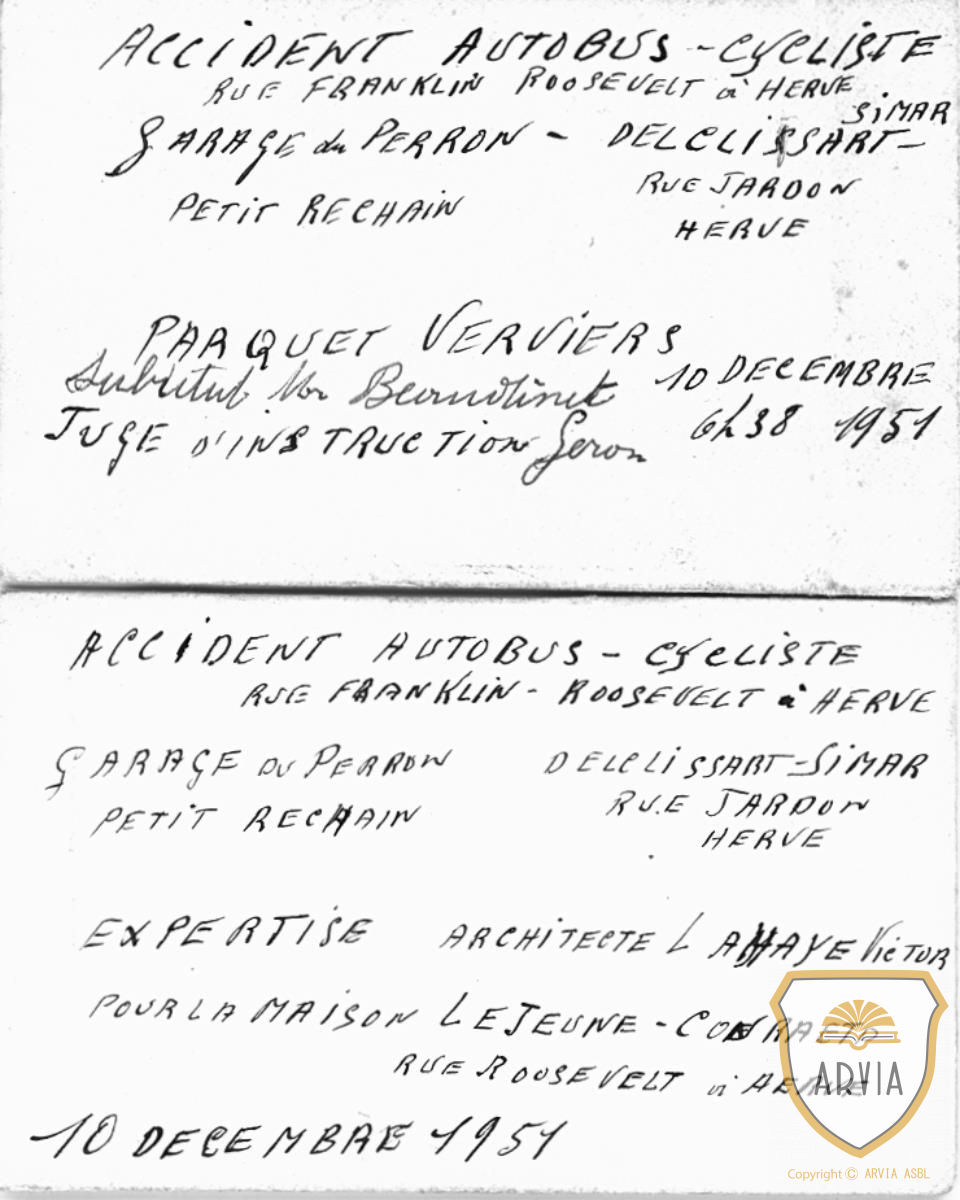 ACCIDENT AUTOBUS - CYCLISTE
RUE FRANKLIN ROOSEVELT à HERVE
GARAGE du PERRON - DELCLISSART-SIMAR
PETIT RECHAIN RUE JARDON
HERVE
PARQUET VERVIERS
Substitut Mr 10 DECEMBRE
JUGE D'INSTRUCTION Geron 6h38 1951
ACCIDENT AUTOBUS - CYCLISTE
RUE FRANKLIN - ROOSEVELT à HERVE
GARAGE DU PERRON DELCLISSART-SIMAR
PETIT RECHAIN RUE JARDON
HERVE
EXPERTISE ARCHITECTE LAHAYE VICTOR
POUR LA MAISON LEJEUNE -
RUE ROOSEVELT à HERVE
10 DECEMBRE 1951
ARVIA
Copyright © ARVIA ASBL